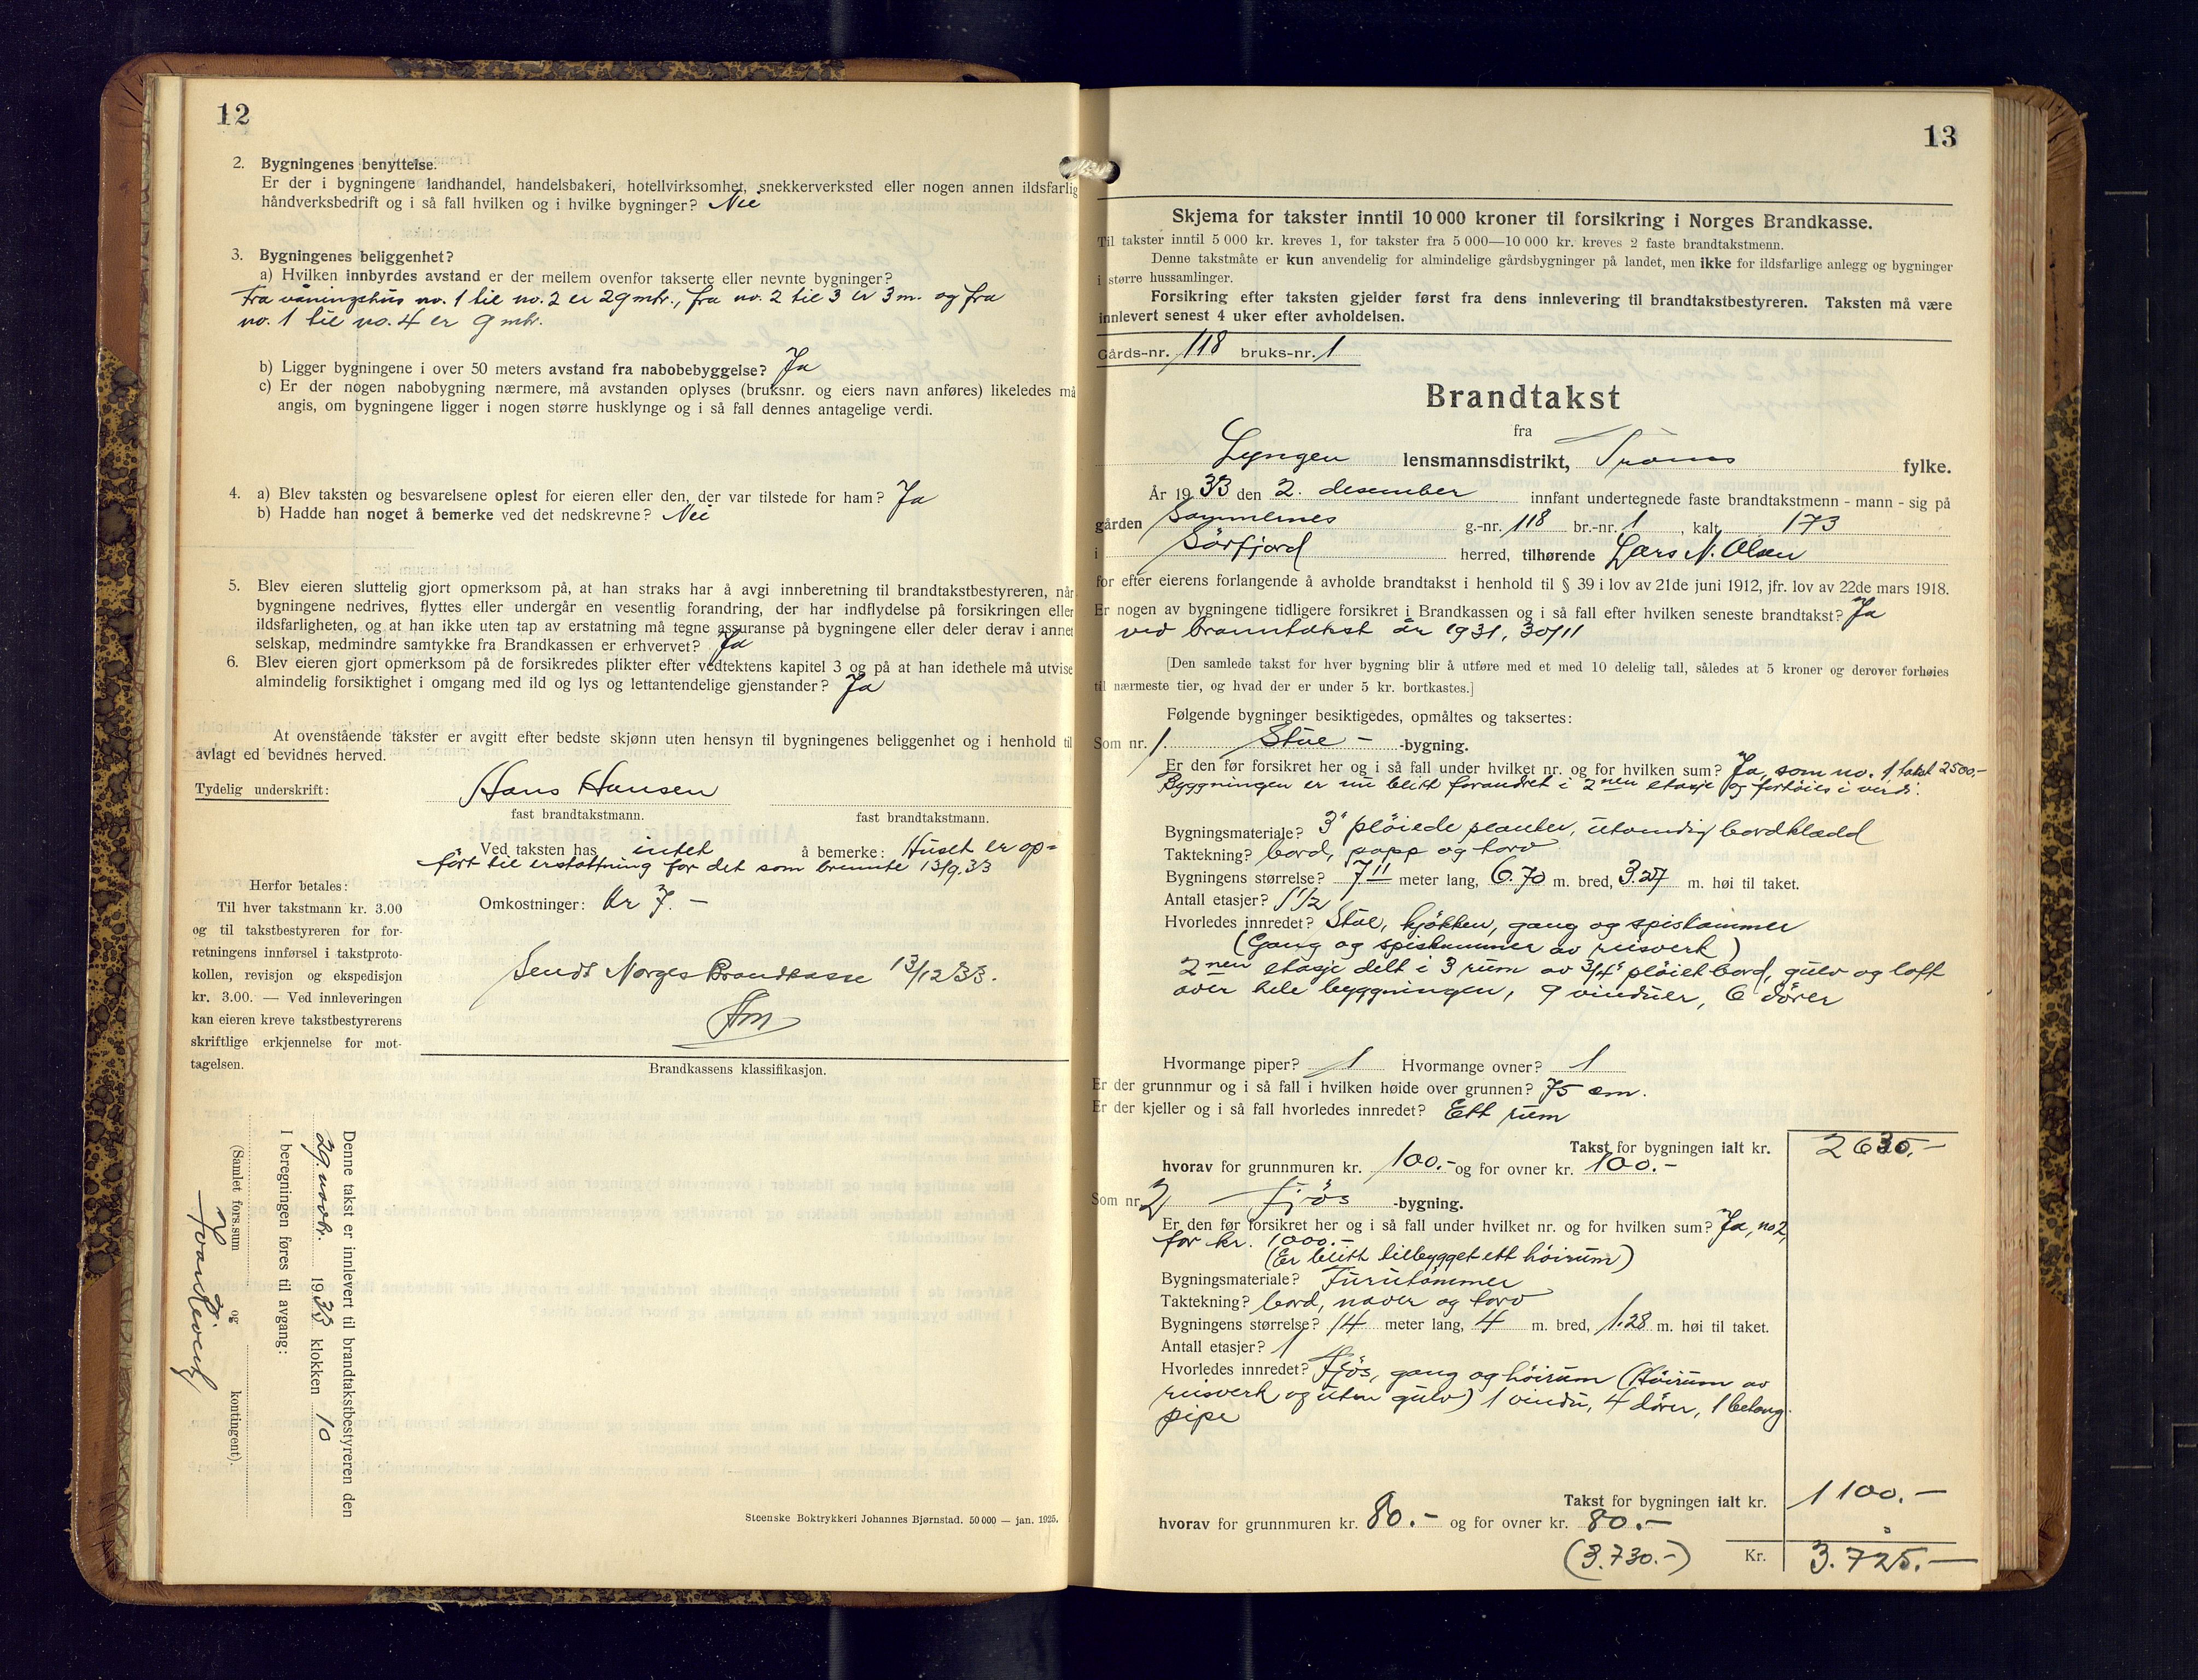 12
2. Bygningenes benyttelse.
Er der i bygningene landhandel, handelsbakeri, hotellvirksomhet, snekkerverksted eller nogen annen ildsfarlig
håndverksbedrift og i så fall hvilken og i hvilke bygninger? Nei
3. Bygningenes beliggenhet?
a) Hvilken innbyrdes avstand er der mellem ovenfor takserte eller nevnte bygninger?
Fra våningshus no. 1 til no. 2 er 29 mtr., fra no. 2 til 3 er 3 m. og fra
no. 1 til no. 4 er 9 mtr.
b) Ligger bygningene i over 50 meters avstand fra nabobebyggelse? Ja
c) Er der nogen nabobygning nærmere, må avstanden oplyses (bruksnr. og eiers navn anføres) likeledes må
angis, om bygningene ligger i nogen større husklynge og i så fall dennes antagelige verdi.
4. a) Blev taksten og besvarelsene oplest for eieren eller den, der var tilstede for ham? Ja
b) Hadde han noget å bemerke ved det nedskrevne? Nei
5. Blev eieren sluttelig gjort opmerksom på, at han straks har å avgi innberetning til brandtakstbestyreren, når
bygningene nedrives, flyttes eller undergår en vesentlig forandring, der har indflydelse på forsikringen eller
ildsfarligheten, og at han ikke uten tap av erstatning må tegne assuranse på bygningene eller deler derav i annet
selskap, medmindre samtykke fra Brandkassen er erhvervet? Ja
6. Blev eieren gjort opmerksom på de forsikredes plikter efter vedtektens kapitel 3 og på at han idethele må utvise
almindelig forsiktighet i omgang med ild og lys og lettantendelige gjenstander? Ja
At ovenstående takster er avgitt efter bedste skjønn uten hensyn til bygningenes beliggenhet og i henhold til
avlagt ed bevidnes herved.
Tydelig underskrift: Hans Hansen
fast brandtakstmann. fast brandtakstmann.
Ved taksten has intet å bemerke: Huset er op-
fört til erstattning for det som brennte 13/9.33
Omkostninger: Kr 7. -
Herfor betales:
Til hver takstmann kr. 3.00
og til takstbestyreren for for-
retningens innførsel i takstproto-
kollen, revisjon og ekspedisjon
kr. 3.00. — Ved innleveringen
kan eieren kreve takstbestyrerens
skriftlige erkjennelse for mot-
tagelsen.
Sendt Norges Brandkasse 13/12 33.
Brandkassens klassifikasjon.
Denne takst er innlevert til brandtakstbestyreren den
29. novbr. 1933 klokken 10
I beregningen føres til avgang:
(Samlet fors.sum og kontingent).
Steenske Boktrykkeri Johannes Bjørnstad. 50 000 — jan. 1925.
13
Skjema for takster inntil 10 000 kroner til forsikring i Norges Brandkasse.
Til takster inntil 5 000 kr. kreves 1, for takster fra 5 000—10 000 kr. kreves 2 faste brandtakstmenn.
Denne takstmåte er kun anvendelig for almindelige gårdsbygninger på landet, men ikke for ildsfarlige anlegg og bygninger
i større hussamlinger.
Forsikring efter taksten gjelder først fra dens innlevering til brandtakstbestyreren. Taksten må være
innlevert senest 4 uker efter avholdelsen.
Gårds-nr. 118 bruks-nr. 1
Brandtakst
fra
Lyngen lensmannsdistrikt, Troms fylke.
År 1933 den 2. desember innfant undertegnede faste brandtakstmenn - mann - sig på
gården Sommernes g.-nr. 118 br.-nr. 1, kalt 173
i Sörfjord herred, tilhørende Lars N. Olsen
for efter eierens forlangende å avholde brandtakst i henhold til § 39 i lov av 21de juni 1912, jfr. lov av 22de mars 1918.
Er nogen av bygningene tidligere forsikret i Brandkassen og i så fall efter hvilken seneste brandtakst? Ja
ved branntakst år 1931, 30/11
[Den samlede takst for hver bygning blir å utføre med et med 10 delelig tall, således at 5 kroner og derover forhøies
til nærmeste tier, og hvad der er under 5 kr. bortkastes.]
Følgende bygninger besiktigedes, opmåltes og taksertes:
Som nr. 1. Stue - -bygning.
Er den før forsikret her og i så fall under hvilket nr. og for hvilken sum? Ja, som no. 1, takst 2500.-
Byggningen er nu blitt forandret i 2nen etasje og forhöies i verdi.
Bygningsmateriale? 3" plöiede planker, utvendig bordklædd
Taktekning? bord, papp og torv
Bygningens størrelse? 7 11 meter lang, 6.70 m. bred, 3.27 m. høi til taket.
Antall etasjer? 1 1/2
Hvorledes innredet? Stue, kjökken, gang og spiskammer
(Gang og spiskammer av reisverk)
2nen etasje delt i 3 rum av 3/4" plöiet bord, gulv og loft
over hele byggningen, 9 vinduer, 6 dörer
Hvormange piper? 1 Hvormange ovner? 1
Er der grunnmur og i så fall i hvilken høide over grunnen? 75 cm.
Er der kjeller og i så fall hvorledes innredet? Ett rum
Takst for bygningen ialt kr. 2630.-
hvorav for grunnmuren kr. 100.- og for ovner kr. 100.-
Som nr. 2 Fjös -bygning.
Er den før forsikret her og i så fall under hvilket nr. og for hvilken sum? Ja, no 2,
for kr. 1000.-
(Er blitt tilbygget ett höirum)
Bygningsmateriale? Furutömmer
Taktekning? bord, never og torv
Bygningens størrelse? 14 meter lang, 4 m. bred, 1.28 m. høi til taket.
Antall etasjer? 1
Hvorledes innredet? Fjös, gang og höirum (Höirum av
reisverk og uten gulv) 1 vindu, 4 dörer, 1 betong
pipe
Takst for bygningen ialt kr. 1100.-
hvorav for grunnmuren kr. 80.- og for ovner kr. 80.-
(3.730.-) Kr. 3.725.-